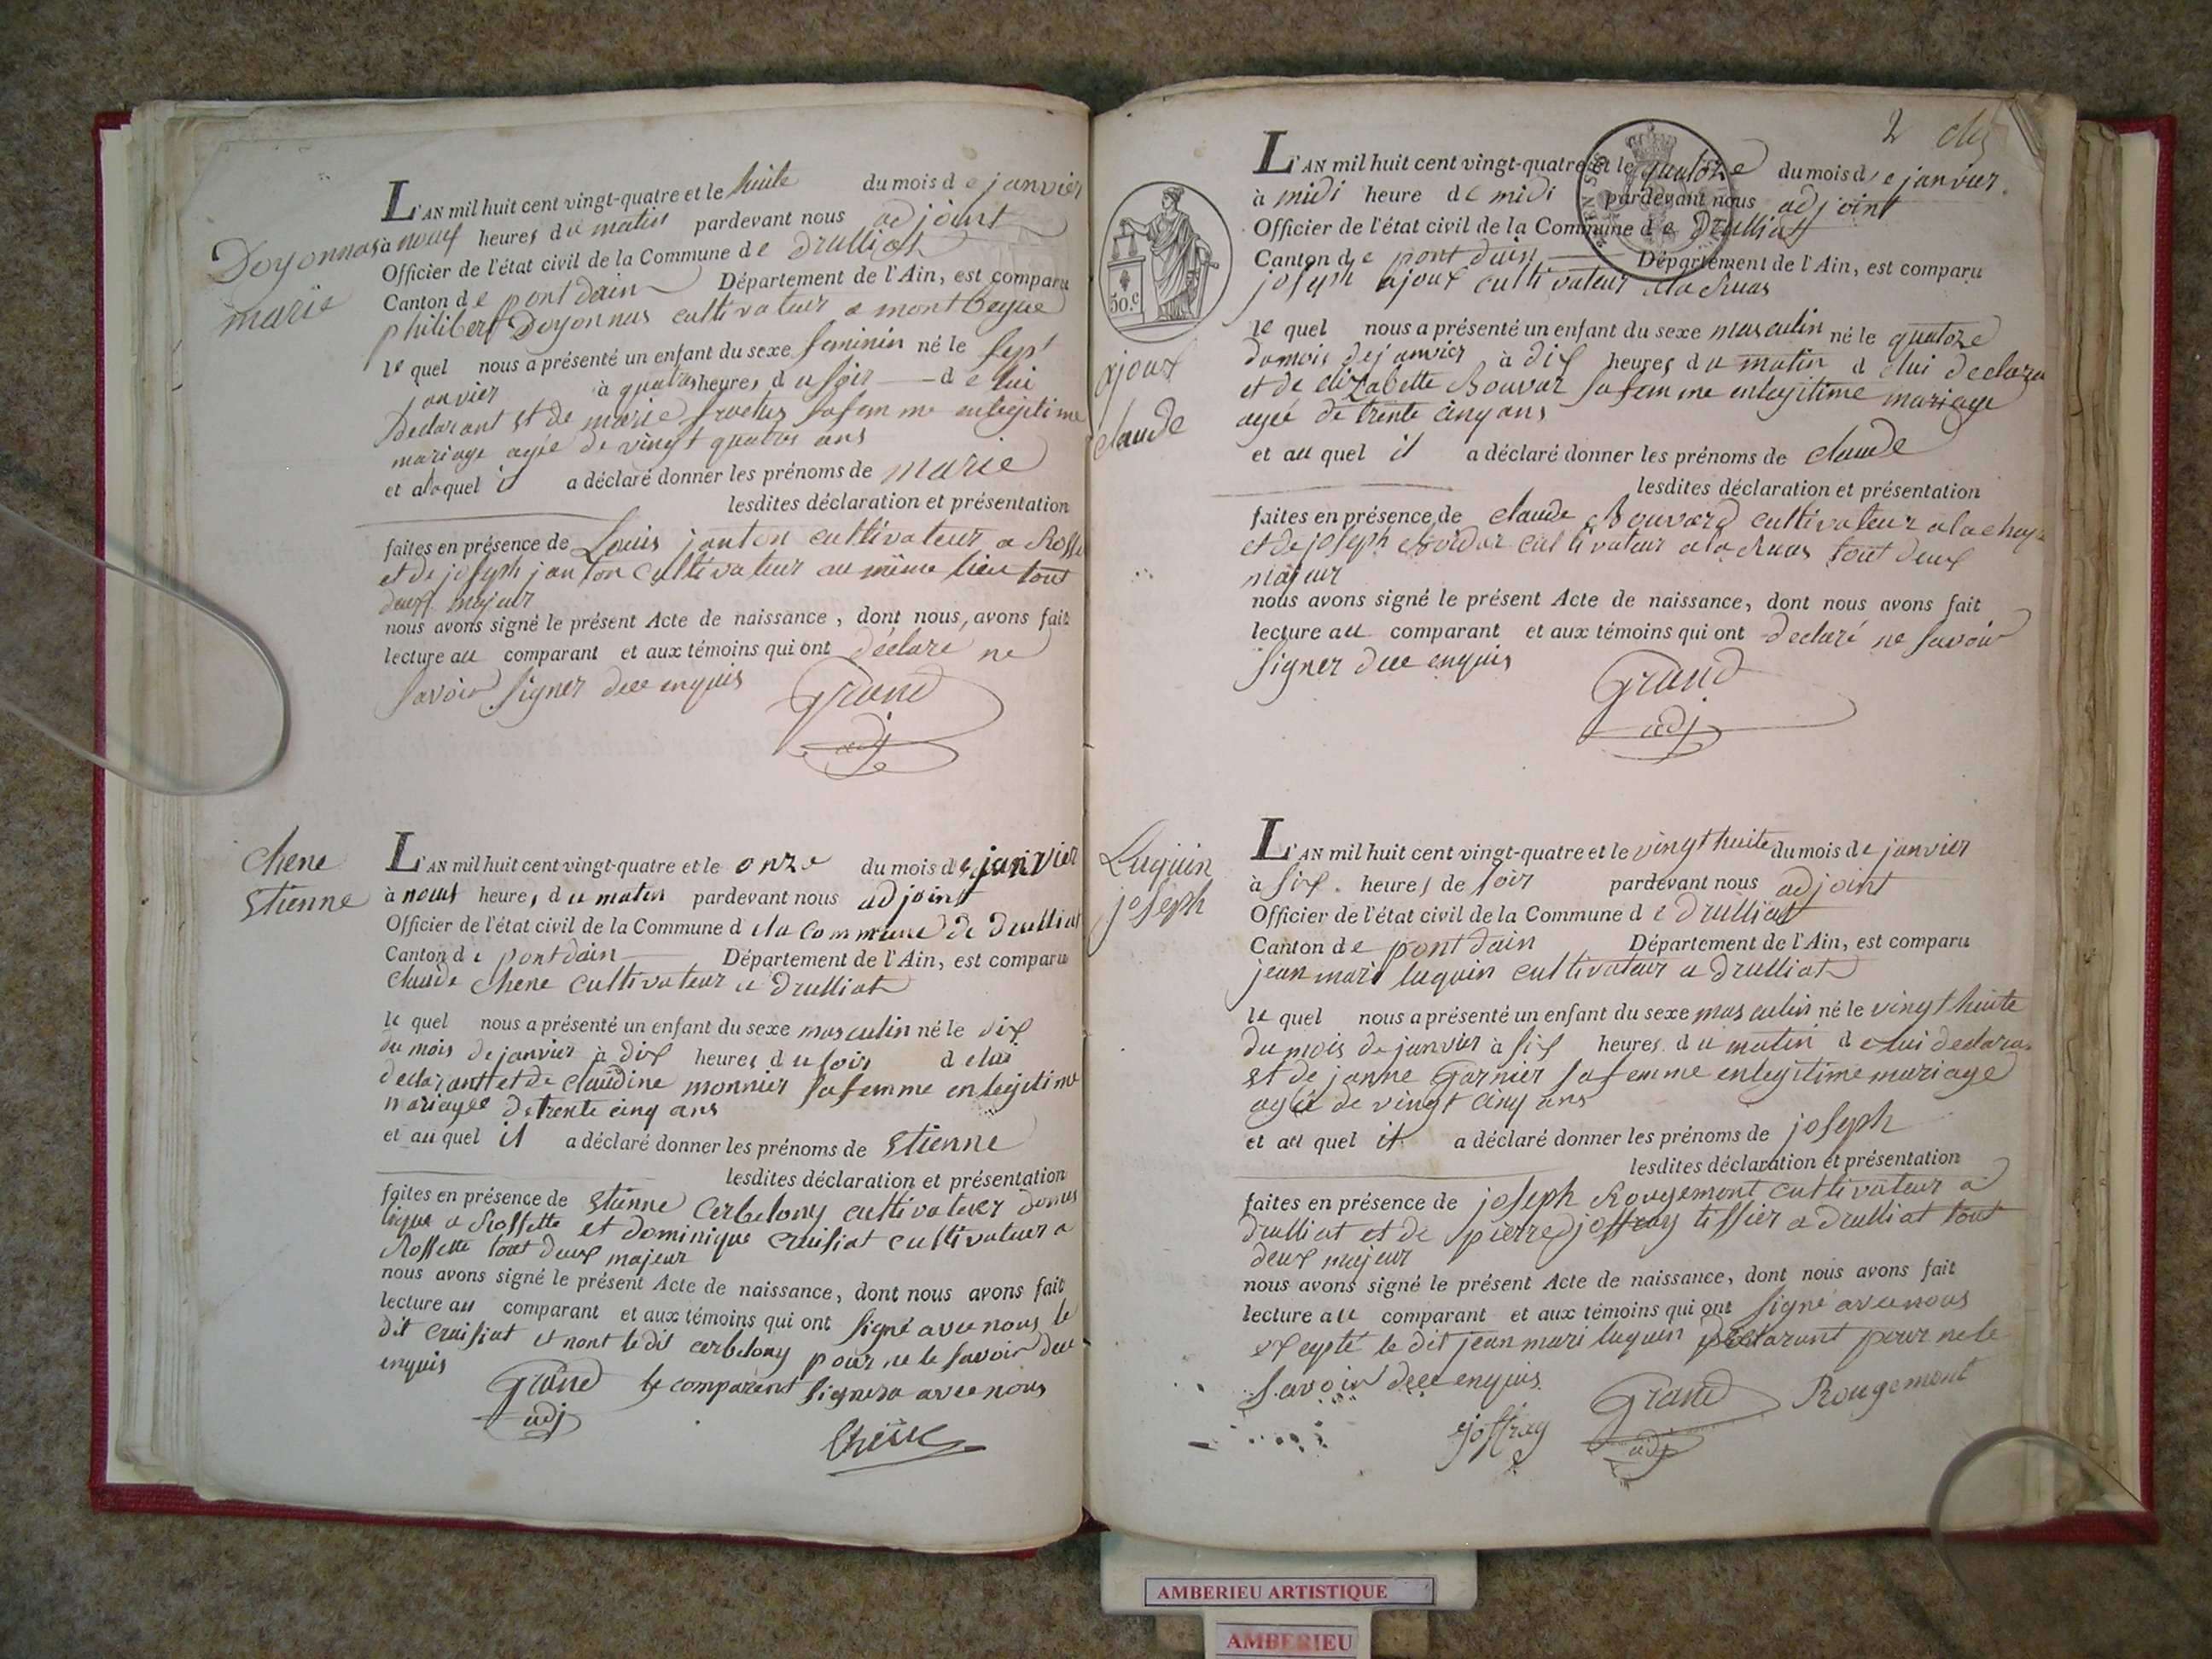 Doyonnas
marie
L'AN mil huit cent vingt-quatre et le huite du mois de janvier
à neuf heures du matin pardevant nous adjoint
Officier de l'état civil de la Commune de Drulliat
Canton de pont dain Département de l'Ain, est comparu
philibert Doyonnas cultivateur a montbegue
le quel nous a présenté un enfant du sexe feminin né le sept
janvier à quatre heures du soir de lui
declarant et de marie fructus sa femme en legitime
mariage agée de vingt quatre ans
et a laquel il a déclaré donner les prénoms de marie
lesdites déclaration et présentation
faites en présence de Louis janton cultivateur a
et de joseph janton cultivateur au même lieu tout
deux majeur
nous avons signé le présent Acte de naissance, dont nous, avons fait
lecture au comparant et aux témoins qui ont déclaré ne
savoir signer de ce enquis
Grand
adj
chene
Etienne
L'AN mil huit cent vingt-quatre et le onze du mois de janvier
à neuf heures du matin pardevant nous adjoint
Officier de l'état civil de la Commune de la commune de drulliat
Canton de pont dain Département de l'Ain, est comparu
claude chene cultivateur a drulliat
le quel nous a présenté un enfant du sexe masculin né le dix
du mois de janvier à dix heures du soir de lui
declarant et de claudine monnier sa femme en legitime
mariagee de trente cinq ans
et au quel il a déclaré donner les prénoms de Etienne
lesdites déclaration et présentation
faites en présence de Etienne cerbelony cultivateur
a Rossette et dominique cruisiat cultivateur a
Rossette tout deux majeur
nous avons signé le présent Acte de naissance, dont nous avons fait
lecture au comparant et aux témoins qui ont signé avec nous le
dit cruisiat et nont le dit cerbelony pour ne le savoir de ce
enquis
Grand le comparent signera avec nous
adj
Chêne
2
50.c
ajoux
claude
L'AN mil huit cent vingt-quatre et le quatorze du mois de janvier.
à midi heure de midi pardevant nous adjoint
Officier de l'état civil de la Commune de Drulliat
Canton de pont dain Département de l'Ain, est comparu
joseph ajoux cultivateur a la Ruas
le quel nous a présenté un enfant du sexe masculin né le quatorze
du mois de janvier à dix heures du matin de lui declara
et de elizabette Bouvar sa femme en legitime mariage
agée de trente cinq ans
et au quel il a déclaré donner les prénoms de claude
lesdites déclaration et présentation
faites en présence de claude Bouvard cultivateur a la
et de joseph cultivateur a la Ruas tout deux
majeur
nous avons signé le présent Acte de naissance, dont nous avons fait
lecture au comparant et aux témoins qui ont declaré ne savoir
signer de ce enquis
Grand
adj
Luquin
joseph
L'AN mil huit cent vingt-quatre et le vingt huite du mois de janvier
à six heures de soir pardevant nous adjoint
Officier de l'état civil de la Commune de drulliat
Canton de pont dain Département de l'Ain, est comparu
jean mari luquin cultivateur a drulliat
le quel nous a présenté un enfant du sexe masculin né le vingt huite
du mois de janvier à six heures du matin de lui declara
et de janne Garnier sa femme en legitime mariage
agée de vingt cinq ans
et au quel il a déclaré donner les prénoms de joseph
lesdites déclaration et présentation
faites en présence de joseph Rougemont cultivateur a
drulliat et de pierre joffray tissier a drulliat tout
deux majeur
nous avons signé le présent Acte de naissance, dont nous avons fait
lecture au comparant et aux témoins qui ont signé avec nous
excepté le dit jean mari luquin declarant pour ne le
savoir de ce enquis
Grand Rougemont
joffray adj
AMBERIEU ARTISTIQUE
AMBERIEU